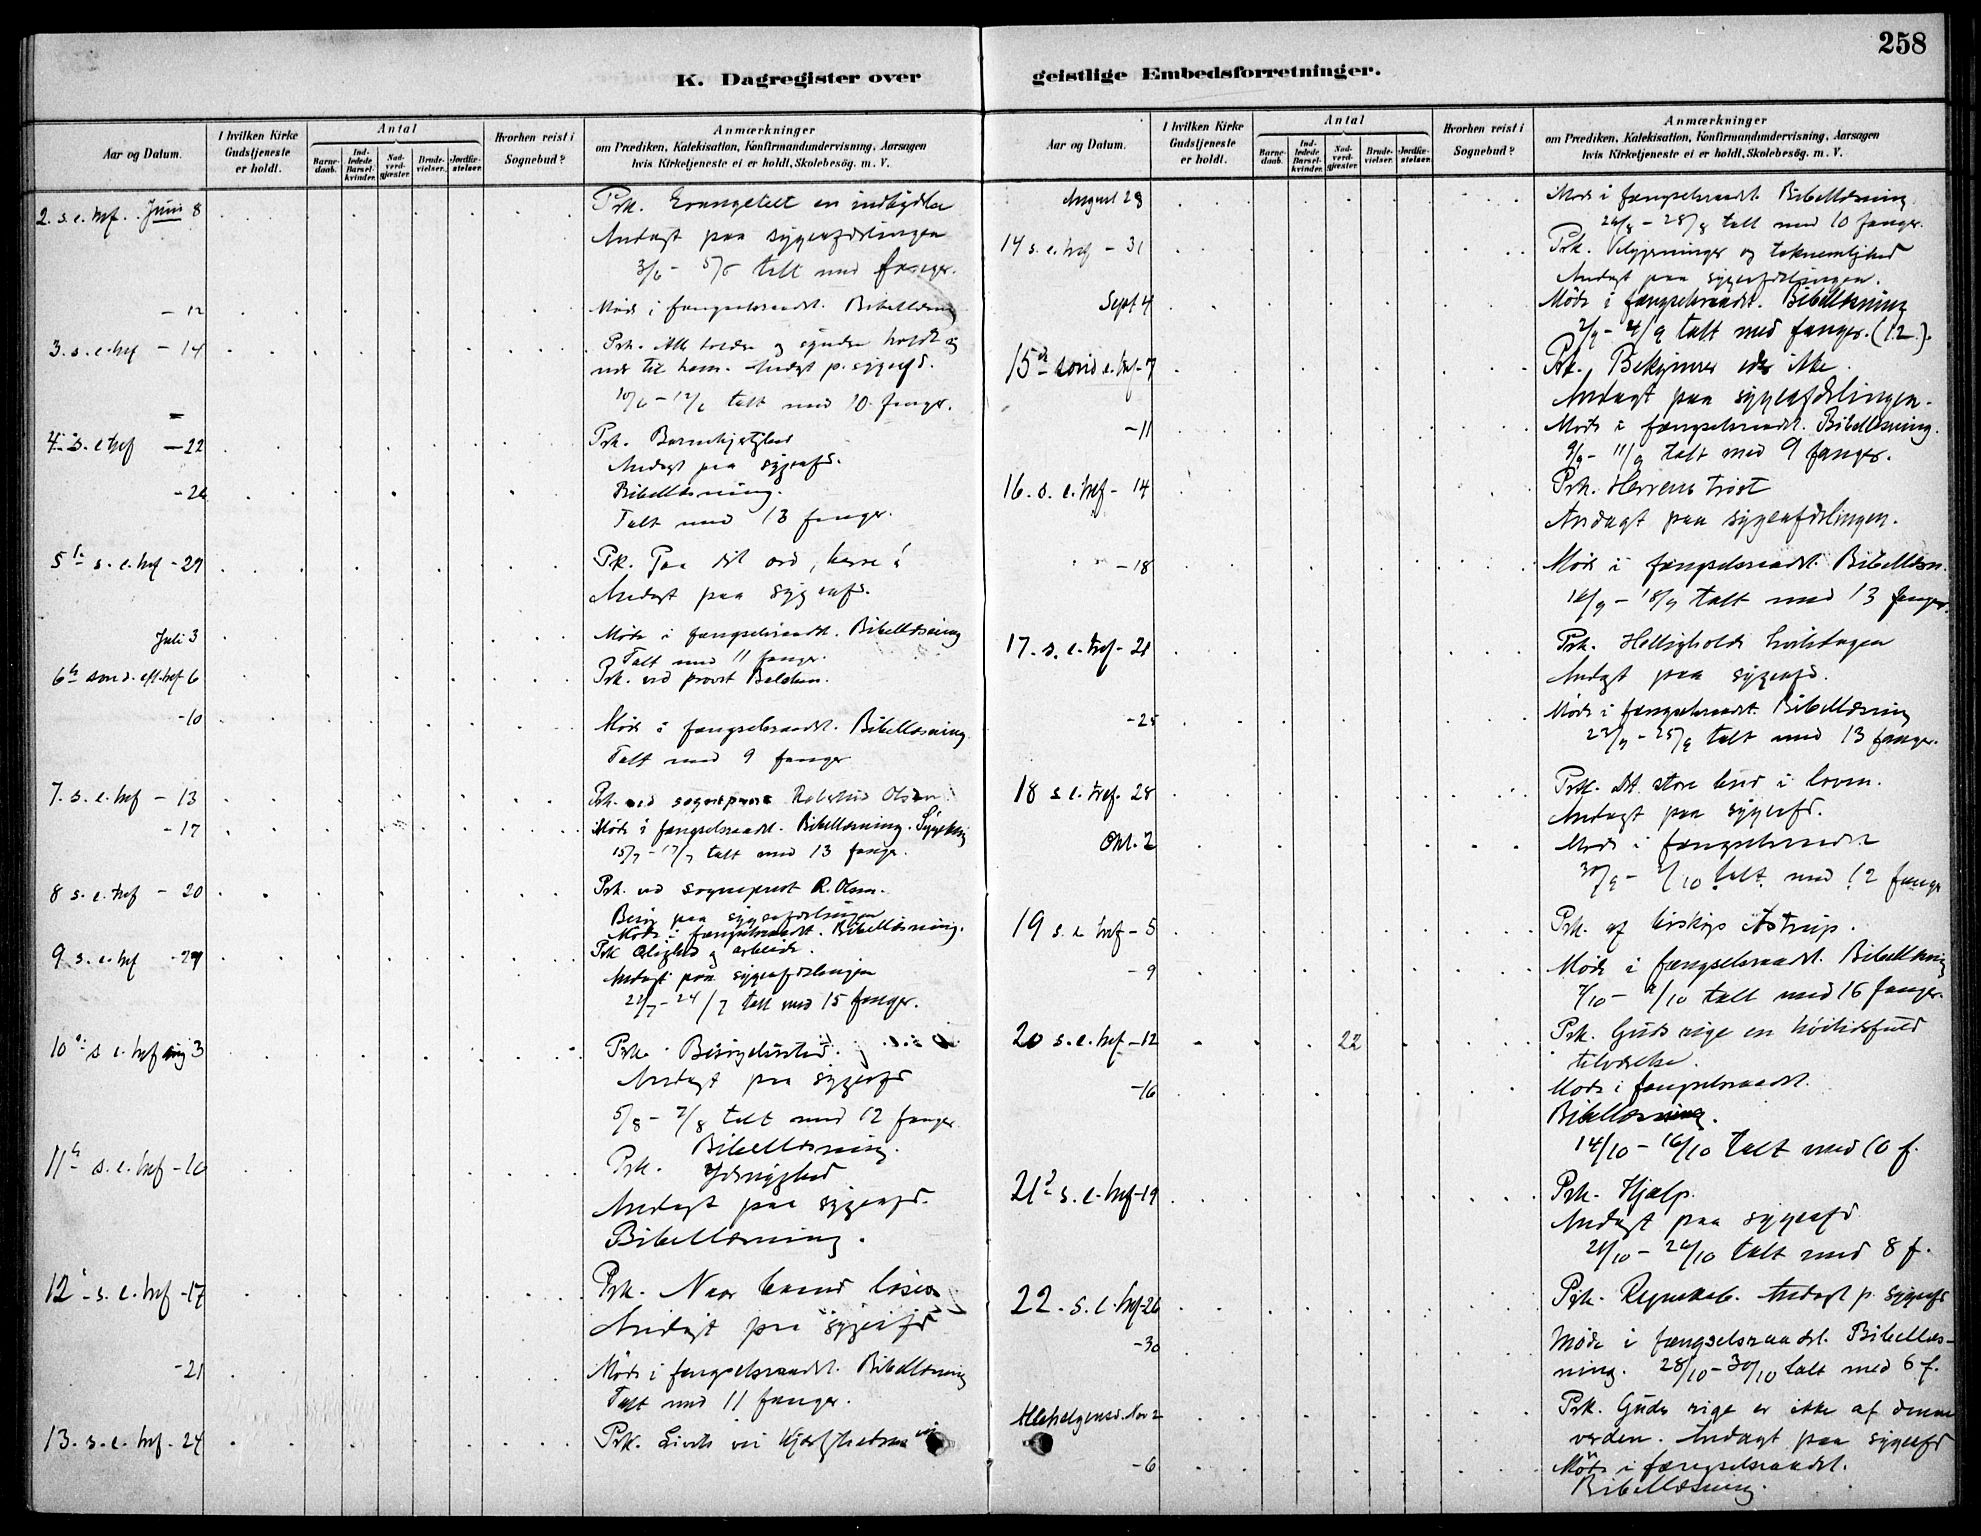 258
K. Dagregister over geistlige Embedsforretninger.
Aar og Datum.
I hvilken Kirke Gudstjeneste er holdt.
Antal
Barnedaab.
Indledede Barselkvinder.
Nadverdgjæster.
Brudevielser.
Jordfæstelser.
Hvorhen reist i Sognebud?
Anmærkninger
om Prædiken, Katekisation, Konfirmandundervisning, Aarsagen
hvis Kirketjeneste ei er holdt, Skolebesøg. m. V.
2. s. e. tref. Juni 8
Prk. Evangeliet en indbydelse
Andagt paa sygeafdelingen
3/6 - 5/6 talt med fanger.
- 12
Møde i fængselsraadet. Bibellæsning
3. s. e. tref - 14
Prk. Alle toldere og syndere holdt sig
nær til ham. Andagt p. sygeafd.
10/6 - 12/6 talt med 10 fanger.
4. s. e. tref - 22
Prk. Barmhjertighed
Andagt paa sygeafd.
- 26
Bibellæsning.
Talt med 13 fanger.
5te s. e. tref - 29
Prk. Paa dit ord, herre!
Andagt paa sygeafd.
Juli 3
Møde i fængselsraadet. Bibellæsning
Talt med 11 fanger.
6te sønd. eft. tref 6
Prk. ved provst
- 10
Møde i fængselsraadet. Bibellæsning.
Talt med 9 fanger
7. s. e. tref - 13
Prk. ved sogneprest Olsen.
- 17
Møde i fængselsraadet. Bibellæsning.
15/7 - 17/7 talt med 13 fanger.
8 s. e. tref - 20
Prk. ved sogneprest R. Olsen.
Besøg paa sygeafdelingen
Møde i fængselsraadet. Bibellæsning.
9 s. e. tref - 27
Prk. Ærlighed og arbeide.
Andagt paa sygeafdelingen
22/7 - 24/7 talt med 15 fanger.
10de s e. tref Aug 3
Prk. Besøgelsestid.
Andagt paa sygeafd
5/8 - 7/8 talt med 12 fanger
Bibellæsning.
11te s. e. tref - 10
Prk. Ydmyghed
Andagt paa sygeafd.
Bibellæsning.
12 - s. e. tref - 17
Prk. Naar baand løses
Andagt paa sygeafd
- 21
Møde i fængselsraadet. Bibellæsning
Talt med 11 fanger.
13. s. e. tref. 24
Prk. Livets vei kjærlighedens vei
August 28
Møde i fængselsraadet. Bibellæsning
26/8 - 28/8 talt med 10 fanger.
14 s. e. tref - 31
Prk. Velgjerninger og taknemlighed
Andagt paa sygeafdelingen.
Sept 4
Møde i fængselsraadet. Bibellæsning
2/9 - 4/9 talt med fanger. (12).
15de sønd e. tref - 7
Prk. Bekymrer eder ikke.
Andagt paa sygeafdelingen.
- 11
Møde i fængselsraadet. Bibellæsning.
9/9 - 11/9 talt med 9 fanger.
16. s. e. tref - 14
Prk. Herrens trøst
Andagt paa sygeafdelingen.
- 18
Møde i fængselsraadet. Bibellæsn.
16/9 - 18/9 talt med 13 fanger.
17. s. e. tref - 21
Prk. Helligholde hviledagen
Andagt paa sygeafd.
- 25
Møde i fængselsraadet. Bibellæsning
23/9 - 25/9 talt med 13 fanger.
18 s e. tref. 28
Prk. Det store bud i loven.
Andagt paa sygeafd.
Okt. 2
Møde i fængselsraadet
30/9 - 2/10 talt med 12 fanger
19 s. e tref - 5
Prk. af biskop Astrup.
- 9
Møde i fængselsraadet. Bibellæsning
7/10 - 9/10 talt med 16 fanger.
20 s. e. tref - 12
22
Prk. Guds rige en høitidsfuld
tilværelse.
- 16
Møde i fængselsraadet.
Bibellæsning.
14/10 - 16/10 talt med 10 f.
21de s. e. tref - 19
Prk. Hjælp.
Andagt paa sygeafd
21/10 - 26/10 talt med 8 f.
22. s. e. tref - 26
Prk. Regnskab. Andagt p. sygeafd
- 30
Møde i fængselsraadet. Bibellæs-
ning. 28/10 - 30/10 talt med 6 f.
Allehelgensd. Nov 2
Prk. Guds rige er ikke af denne
verden. Andagt paa sygeafd
- 6
Møde i fængselsraadet.
Bibellæsning.